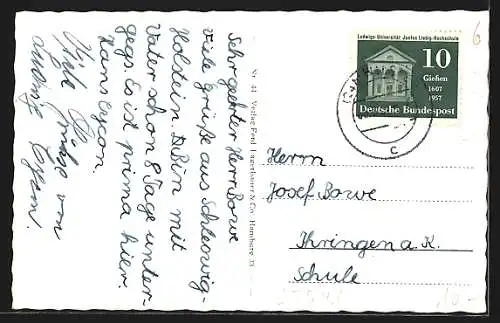 Sehr geehrter Herr Borve
Viele Grüße aus Schleswig-
Holstein. Bin mit
Vater schon 8 Tage unter-
wegs. Es ist prima hier.
Hans Egcon.
Viele Grüße von
Ludwig
Nr. 44 Verlag Ferd. Lagerbauer & Co., Hamburg 33
Ludwigs-Universität Justus Liebig-Hochschule
10
Gießen
1607
1957
Deutsche Bundespost
c
Herrn
Josef Borve
Ihringen a. K.
Schule
6
10.-